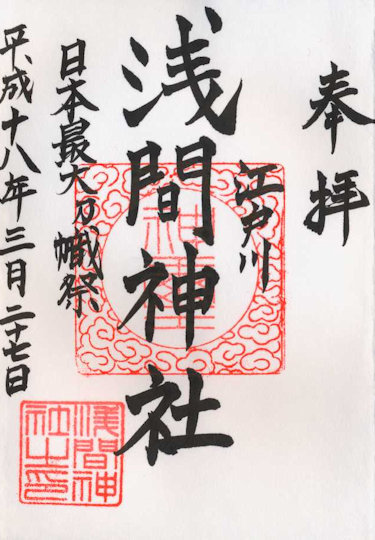 奉拝
江戸川
浅間神社
日本最大の幟祭
平成十八年三月二十七日
浅間神
社之印